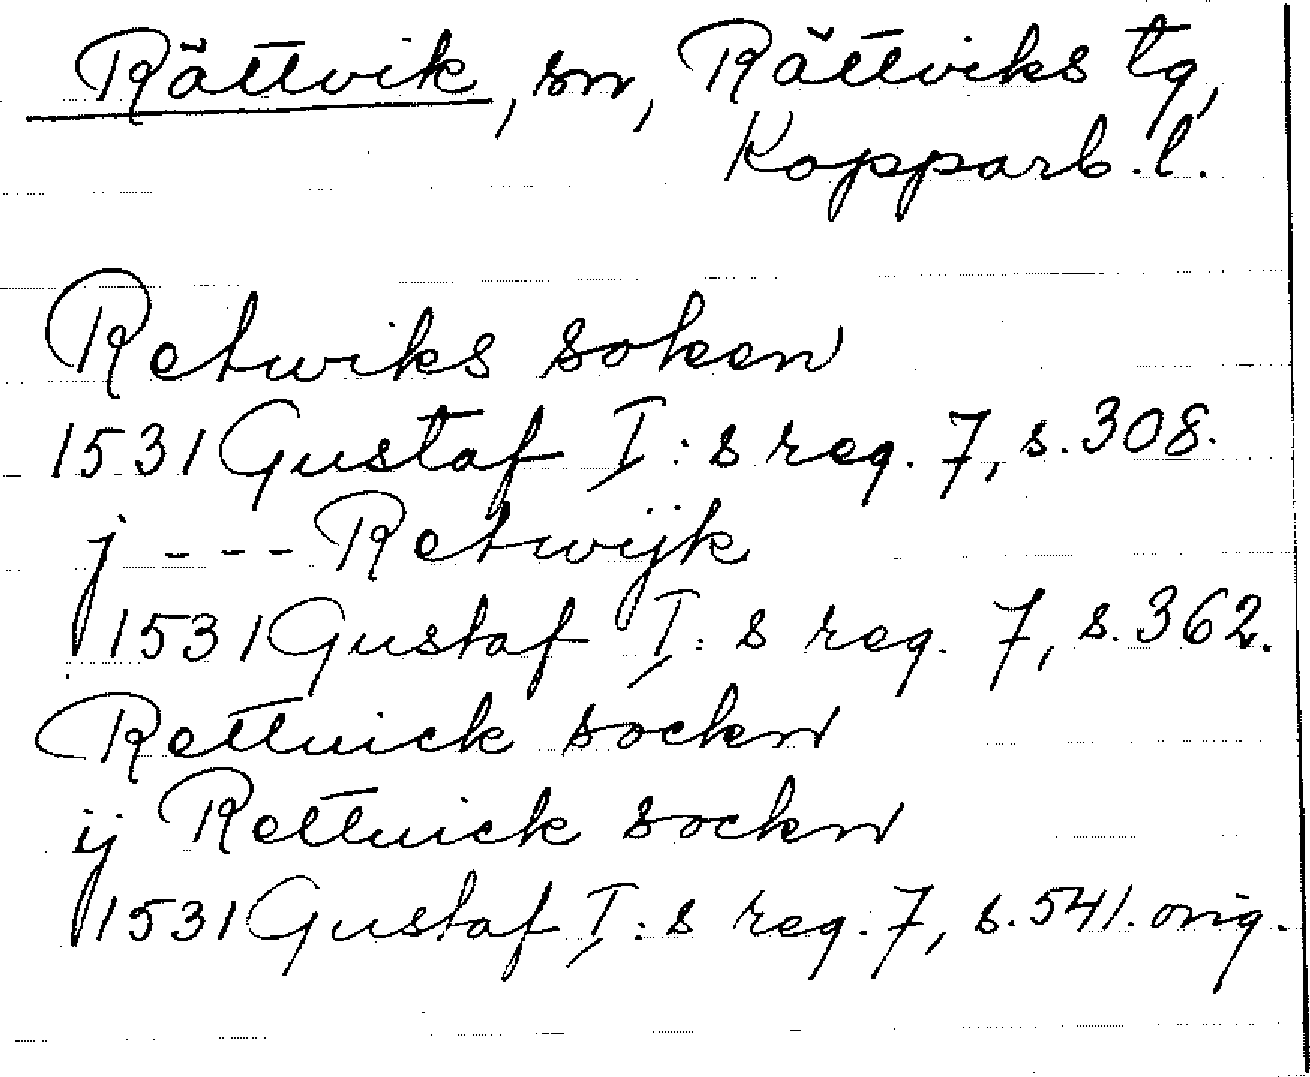 Rättvik, sn, Rättviks tg,
Kopparb. l.
Retwiks soken
1531 Gustaf I:s reg. 7, s. 308.
j - - - Retwijk
1531 Gustaf I:s reg. 7, s. 362.
Rettuick sockn
ij Rettuick sockn
1531 Gustaf I:s reg. 7, s. 541. orig.